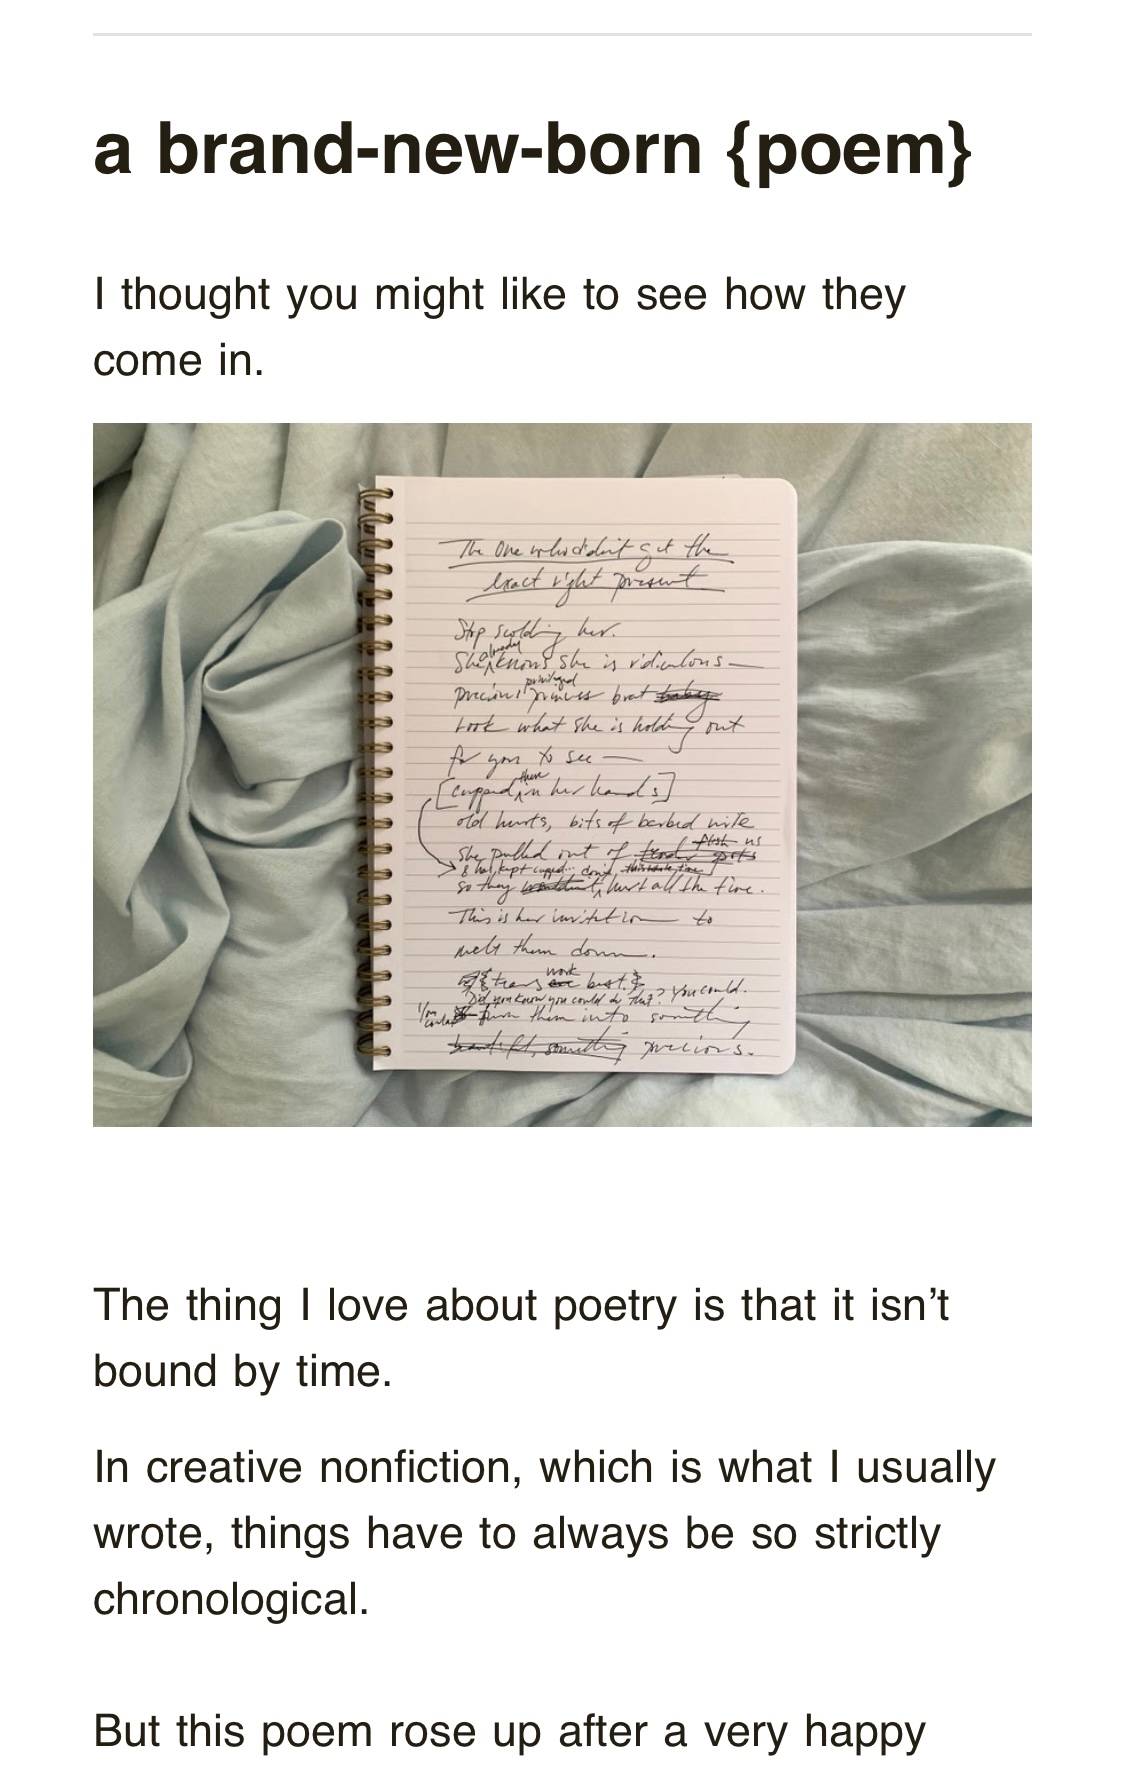 a brand-new-born {poem}
I thought you might like to see how they
come in.
The One who didn't get the
exact right present
Stop scolding her.
already
She knows she is ridiculous—
privileged
precious princess brat baby
Look what she is holding out
for you to see —
there
[cupped in her hands]
old hurts, bits of barbed wire
flesh
She pulled out of tender
& kept cupped
so they hurt all the time.
This is her invitation to
melt them down.
work
tears are best.
Did you know you could do that? You could.
turn them into something
beautiful, something precious.
The thing I love about poetry is that it isn’t
bound by time.
In creative nonfiction, which is what I usually
wrote, things have to always be so strictly
chronological.
But this poem rose up after a very happy